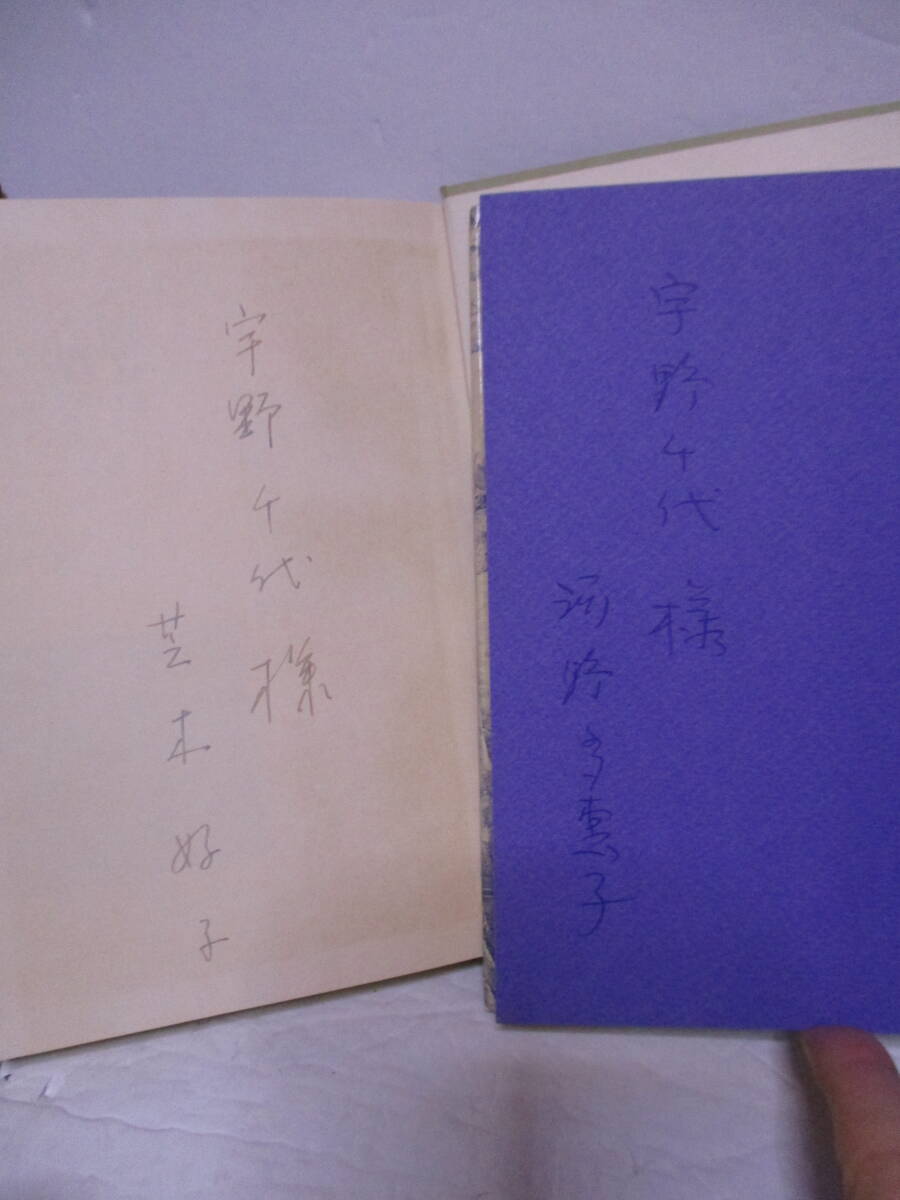 宇野千代様
芝木好子
宇野千代様
河野多惠子